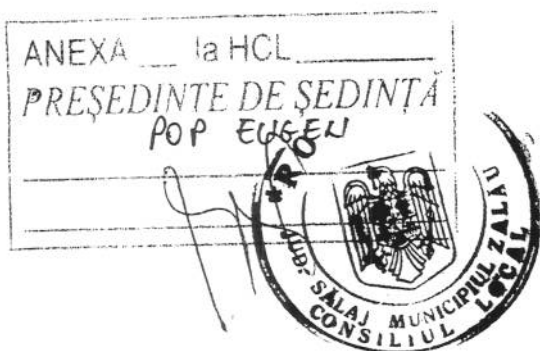 ANEXA ___ la HCL ______
PREȘEDINTE DE ȘEDINȚĂ
POP EUGEN
SĂLAJ MUNICIPIUL ZALĂU
CONSILIUL LOCAL